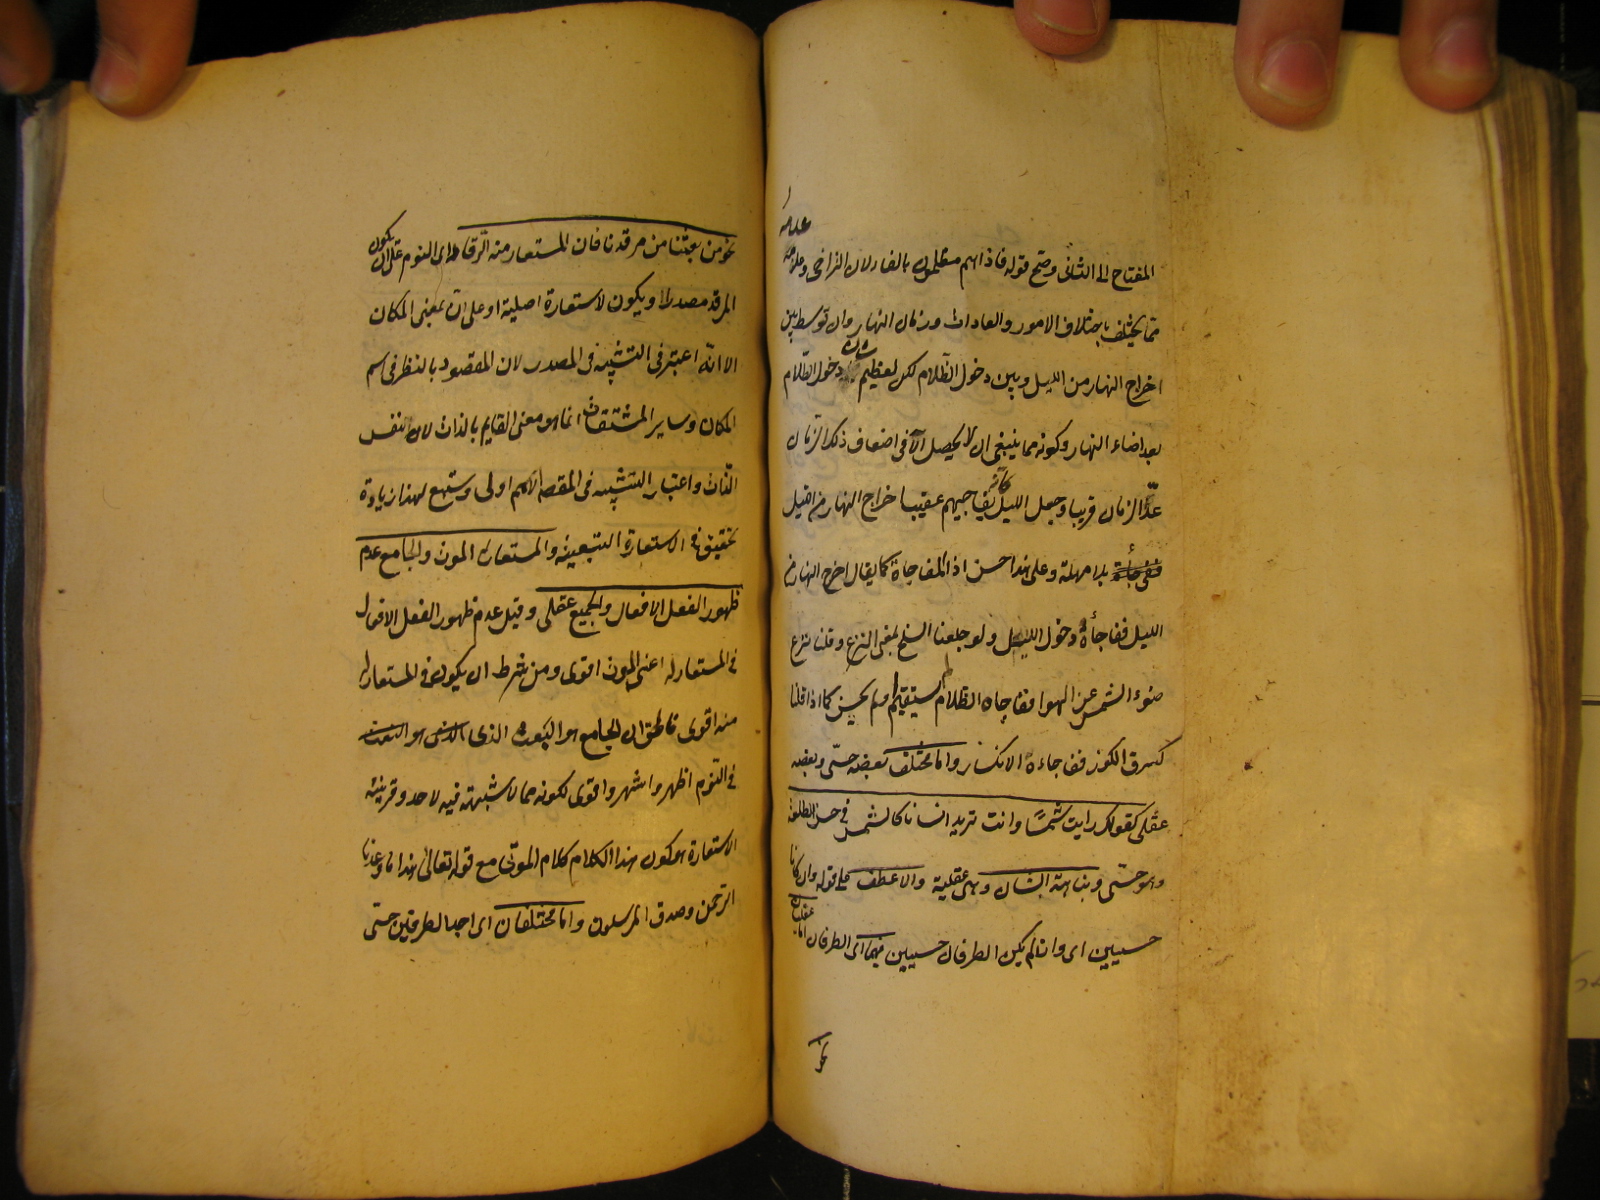 علامه
المفتاح الى الثانى وصح قوله فاذا هم مظلمون بالفاء لان التراخى وعدمه
مما يختلف باختلاف الامور والعادات وزمان النهار وان توسط بين
اخراج النهار من الليل وبين دخول الظلام لكن لعظم شان دخول الظلام
بعد اضاءة النهار وكونه مما ينبغى ان لا يحصل الا فى اضعاف ذلك الزمان
عدّ الزمان قريبا وجعل الليل كانه يفاجيهم عقيب اخراج النهار من الليل
بلا مهلة وعلى هذا حسن اذا المفاجاة كما يقال اخرج النهار من
الليل ففاجأه دخول الليل ولو جعلنا السلخ بمعنى النزع وقلنا نزع
ضوء الشمس عن الهوا ففاجاه الظلام لم يستقم او لم يحسن كما اذا قلنا
كسرت الكوز ففاجاءه الانكسار واما مختلف بعضه حسّى وبعضه
عقلى كقولك رايت شمسًا وانت تريد انسانا كالشمس فى حسن الطلعة
وهو حسّى ونباهة الشان وهى عقلية والا عطف على قوله وان كانا
حسيين اى وان لم يكن الطرفان حسيين فهما اى الطرفان اما عقليان
نحو
نحو من بعثنا من مرقدنا فان المستعار منه الرقاد اى النوم على ان يكون
المرقد مصدرا ويكون الاستعارة اصلية او على انه بمعنى المكان
الا انه اعتبر فى التشبيه فى المصدر لان المقصود بالنظر فى اسم
المكان وساير المشتقات انما هو معنى القايم بالذات لا نفس
الذات واعتبار التشبيه فى المقصد الاهم اولى وستسمع لهذا زيادة
تحقيق فى الاستعارة التبعية والمستعار له الموت والجامع عدم
ظهور الفعل الافعال والجميع عقلى وقيل عدم ظهور الفعل الافعال
فى المستعار له اعنى الموت اقوى ومن شرط ان يكون فى المستعار
منه اقوى فالحق ان الجامع هو البعث الذى الذى هو البعث
فى النوم اظهر واشهر واقوى لكونه مما لا شبهة فيه لاحد وقرينة
الاستعارة هو كون هذا الكلام كلام الموتى مع قوله تعالى هذا ما وعدنا
الرحمن وصدق المرسلون واما مختلفان اى احد الطرفين حسّى